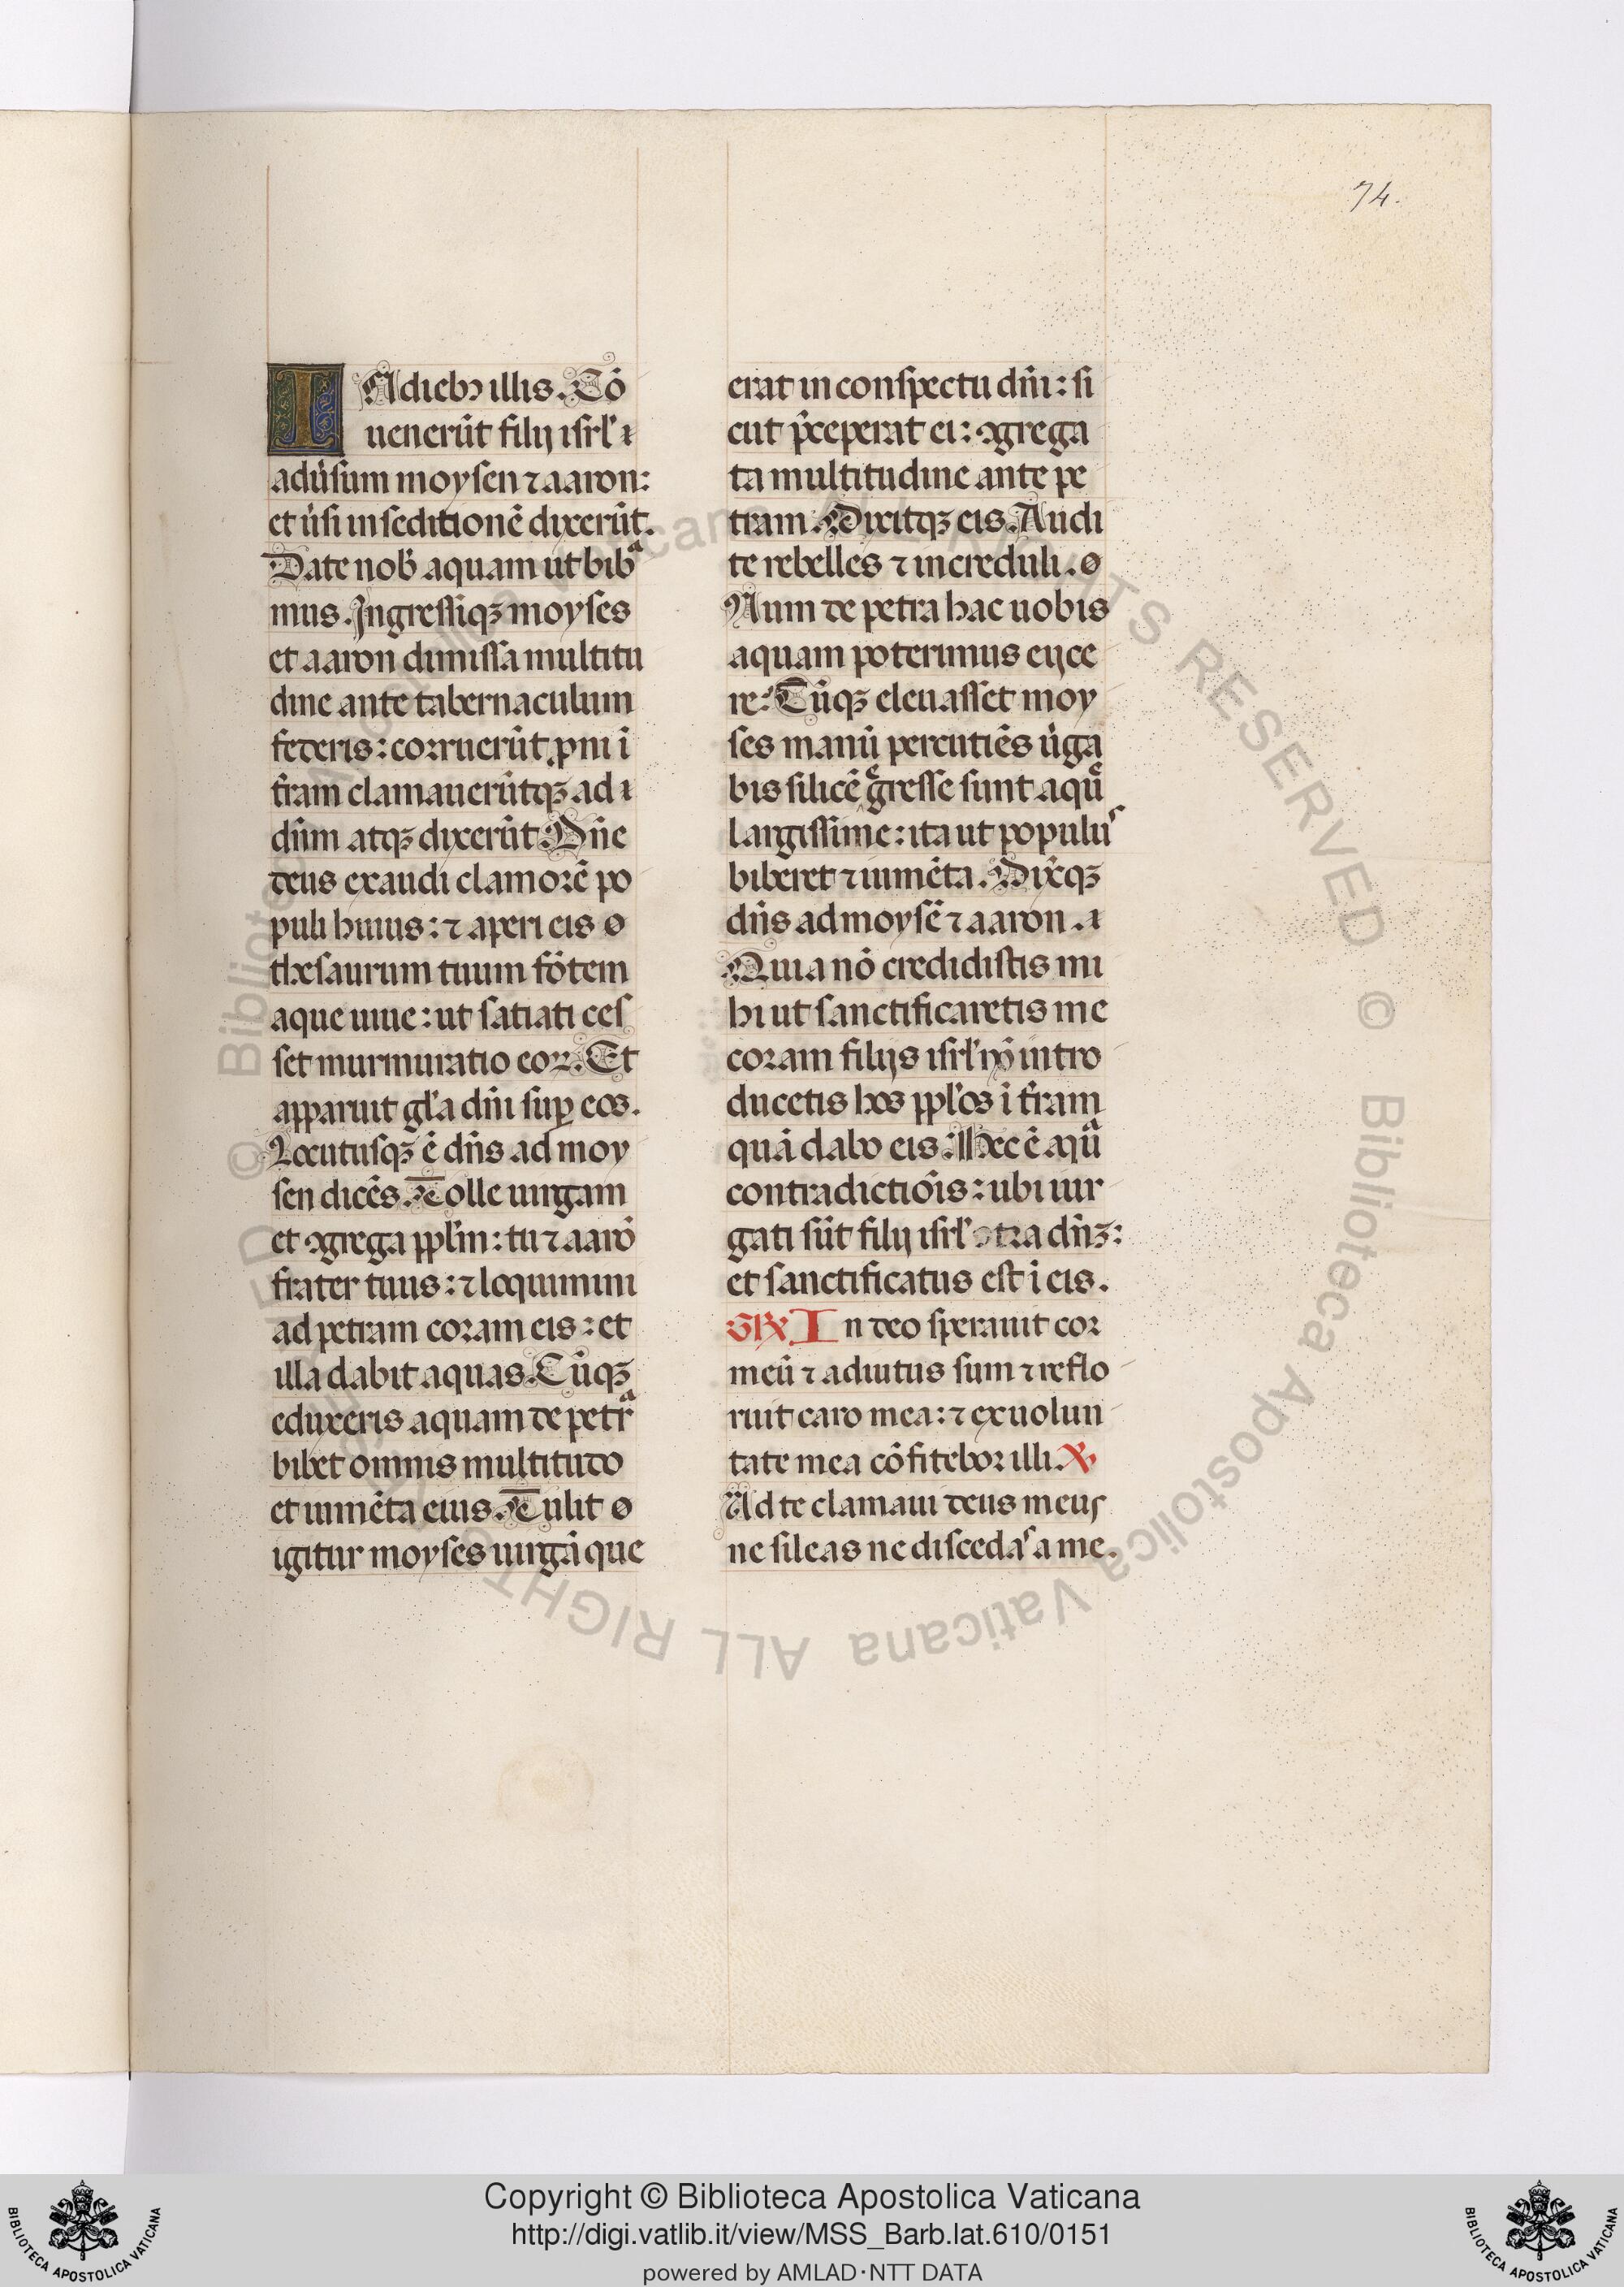 74.
IN dieb; illis. Cō
uenerūt filij isrl̕
adūsum moysen ⁊ aaron:
et ūsi in seditionē dixerūt.
Date nob̕ aquam ut bibᵃ
mus. Ingressiq; moyses
et aaron dimissa multitu
dine ante tabernaculum
federis: corruerūt pni ī
t̄ram clamauerūtq; ad
dn̄m atq; dixerūt Dn̄e
deus exaudi clamorē po
puli huius: ⁊ aperi eis
thesaurum tuum fōtem
aque uiue: ut satiati ces
set murmuratio eoꝝ. Et
apparuit gl̕a dn̄i suꝑ eos.
Locutusq; ē dn̄s ad moy
sen dicēs. Tolle uirgam
et ꝯgrega ppl̕m: tu ⁊ aarō
frater tuus: ⁊ loquimini
ad petram coram eis: et
illa dabit aquas. Cūq;
eduxeris aquam de petrᵃ
bibet omnis multitudo
et iumēta eius. Tulit
igitur moyses uirgā que
erat in conspectu dn̄i: si
cut p̄ceperat ei: ꝯgrega
ta multitudine ante pe
tram. Dixitq; eis. Audi
te rebelles ⁊ increduli.
Num de petra hac uobis
aquam poterimus eijce
re: Cūq; eleuasset moy
ses manū percutiēs ūga
bis silicē egresse sunt aquē
largissime: ita ut populuˢ
biberet ⁊ iumēta. Dix̄q;
dn̄s ad moysē ⁊ aaron.
Quia nō credidistis mi
hi ut sanctificaretis me
coram filijs isrl̕ nō intro
ducetis hos ppl̕os ī t̄ram
quā dabo eis: Hec ē aquᵃ
contradictiōis: ubi iur
gati sūt filij isrl̕ ꝯtra dn̄ꝫ:
et sanctificatus est ī eis.
GR̄ In deo sperauit cor
meū ⁊ adiutus sum ⁊ reflo
ruit caro mea: ⁊ ex uolun
tate mea cōfitebor illi. ℣
Ad te clamaui deus meus
ne sileas ne discedaˢ a me.
© Biblioteca Apostolica Vaticana ALL RIGHTS RESERVED © Biblioteca Apostolica Vaticana ALL RIGHTS RESERVED
BIBLIOTECA APOSTOLICA VATICANA
Copyright © Biblioteca Apostolica Vaticana
http://digi.vatlib.it/view/MSS_Barb.lat.610/0151
powered by AMLAD·NTT DATA
BIBLIOTECA APOSTOLICA VATICANA